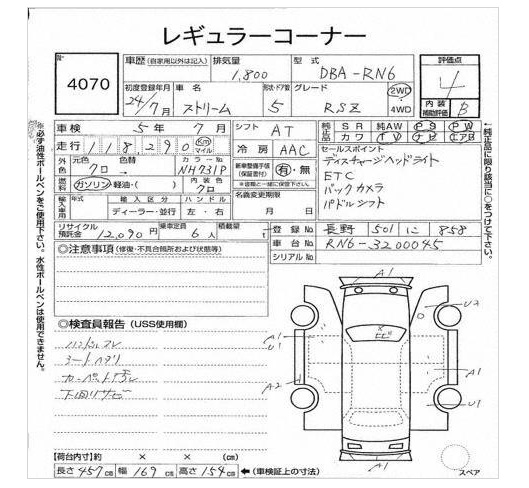 レギュラーコーナー
4070
車歴 (自家用以外は記入) 排気量 型式 評価点
1,800 DBA-RN6 4
初度登録年月 車名 形状・ドア数 グレード 2WD 内装 補助評価
24/7月 ストリーム 5 RSZ 4WD B
車検 5年 7月 シフト AT 純正 SR 純AW PS PW
走行 118,290 Km マイル 冷房 AAC 純正 カワ TV ナビ エアB
外色 元色 色替 カラーNo セールスポイント
クロ NH731P 新車整備手帳 (保証書付) 有・無 ディスチャージヘッドライト
燃料 ガソリン・軽油・( ) 内装色 クロ ETC
輸入車用 年式 輸入区分 ハンドル 名義変更期限 バックカメラ
ディーラー・並行 左・右 月 日 パドルシフト
リサイクル預託金 12,090円 乗車定員 6人 積載量 t 登録No 長野 501 に 858
車台No RN6-3200045
シリアルNo
◎注意事項 (修復・不具合箇所および状態等)
◎検査員報告 (USS使用欄)
ハンドルスレ
シートヘタリ
下回りサビ
A1
U2
A1
U1
A2
A1
U1
A1
【荷台内寸】約 × × (cm)
長さ 457cm 幅 169cm 高さ 154cm ←(車検証上の寸法)
スペア
※必ず油性ボールペンをご使用下さい。水性ボールペンは使用できません。
←純正品に限り該当に○をつけて下さい。